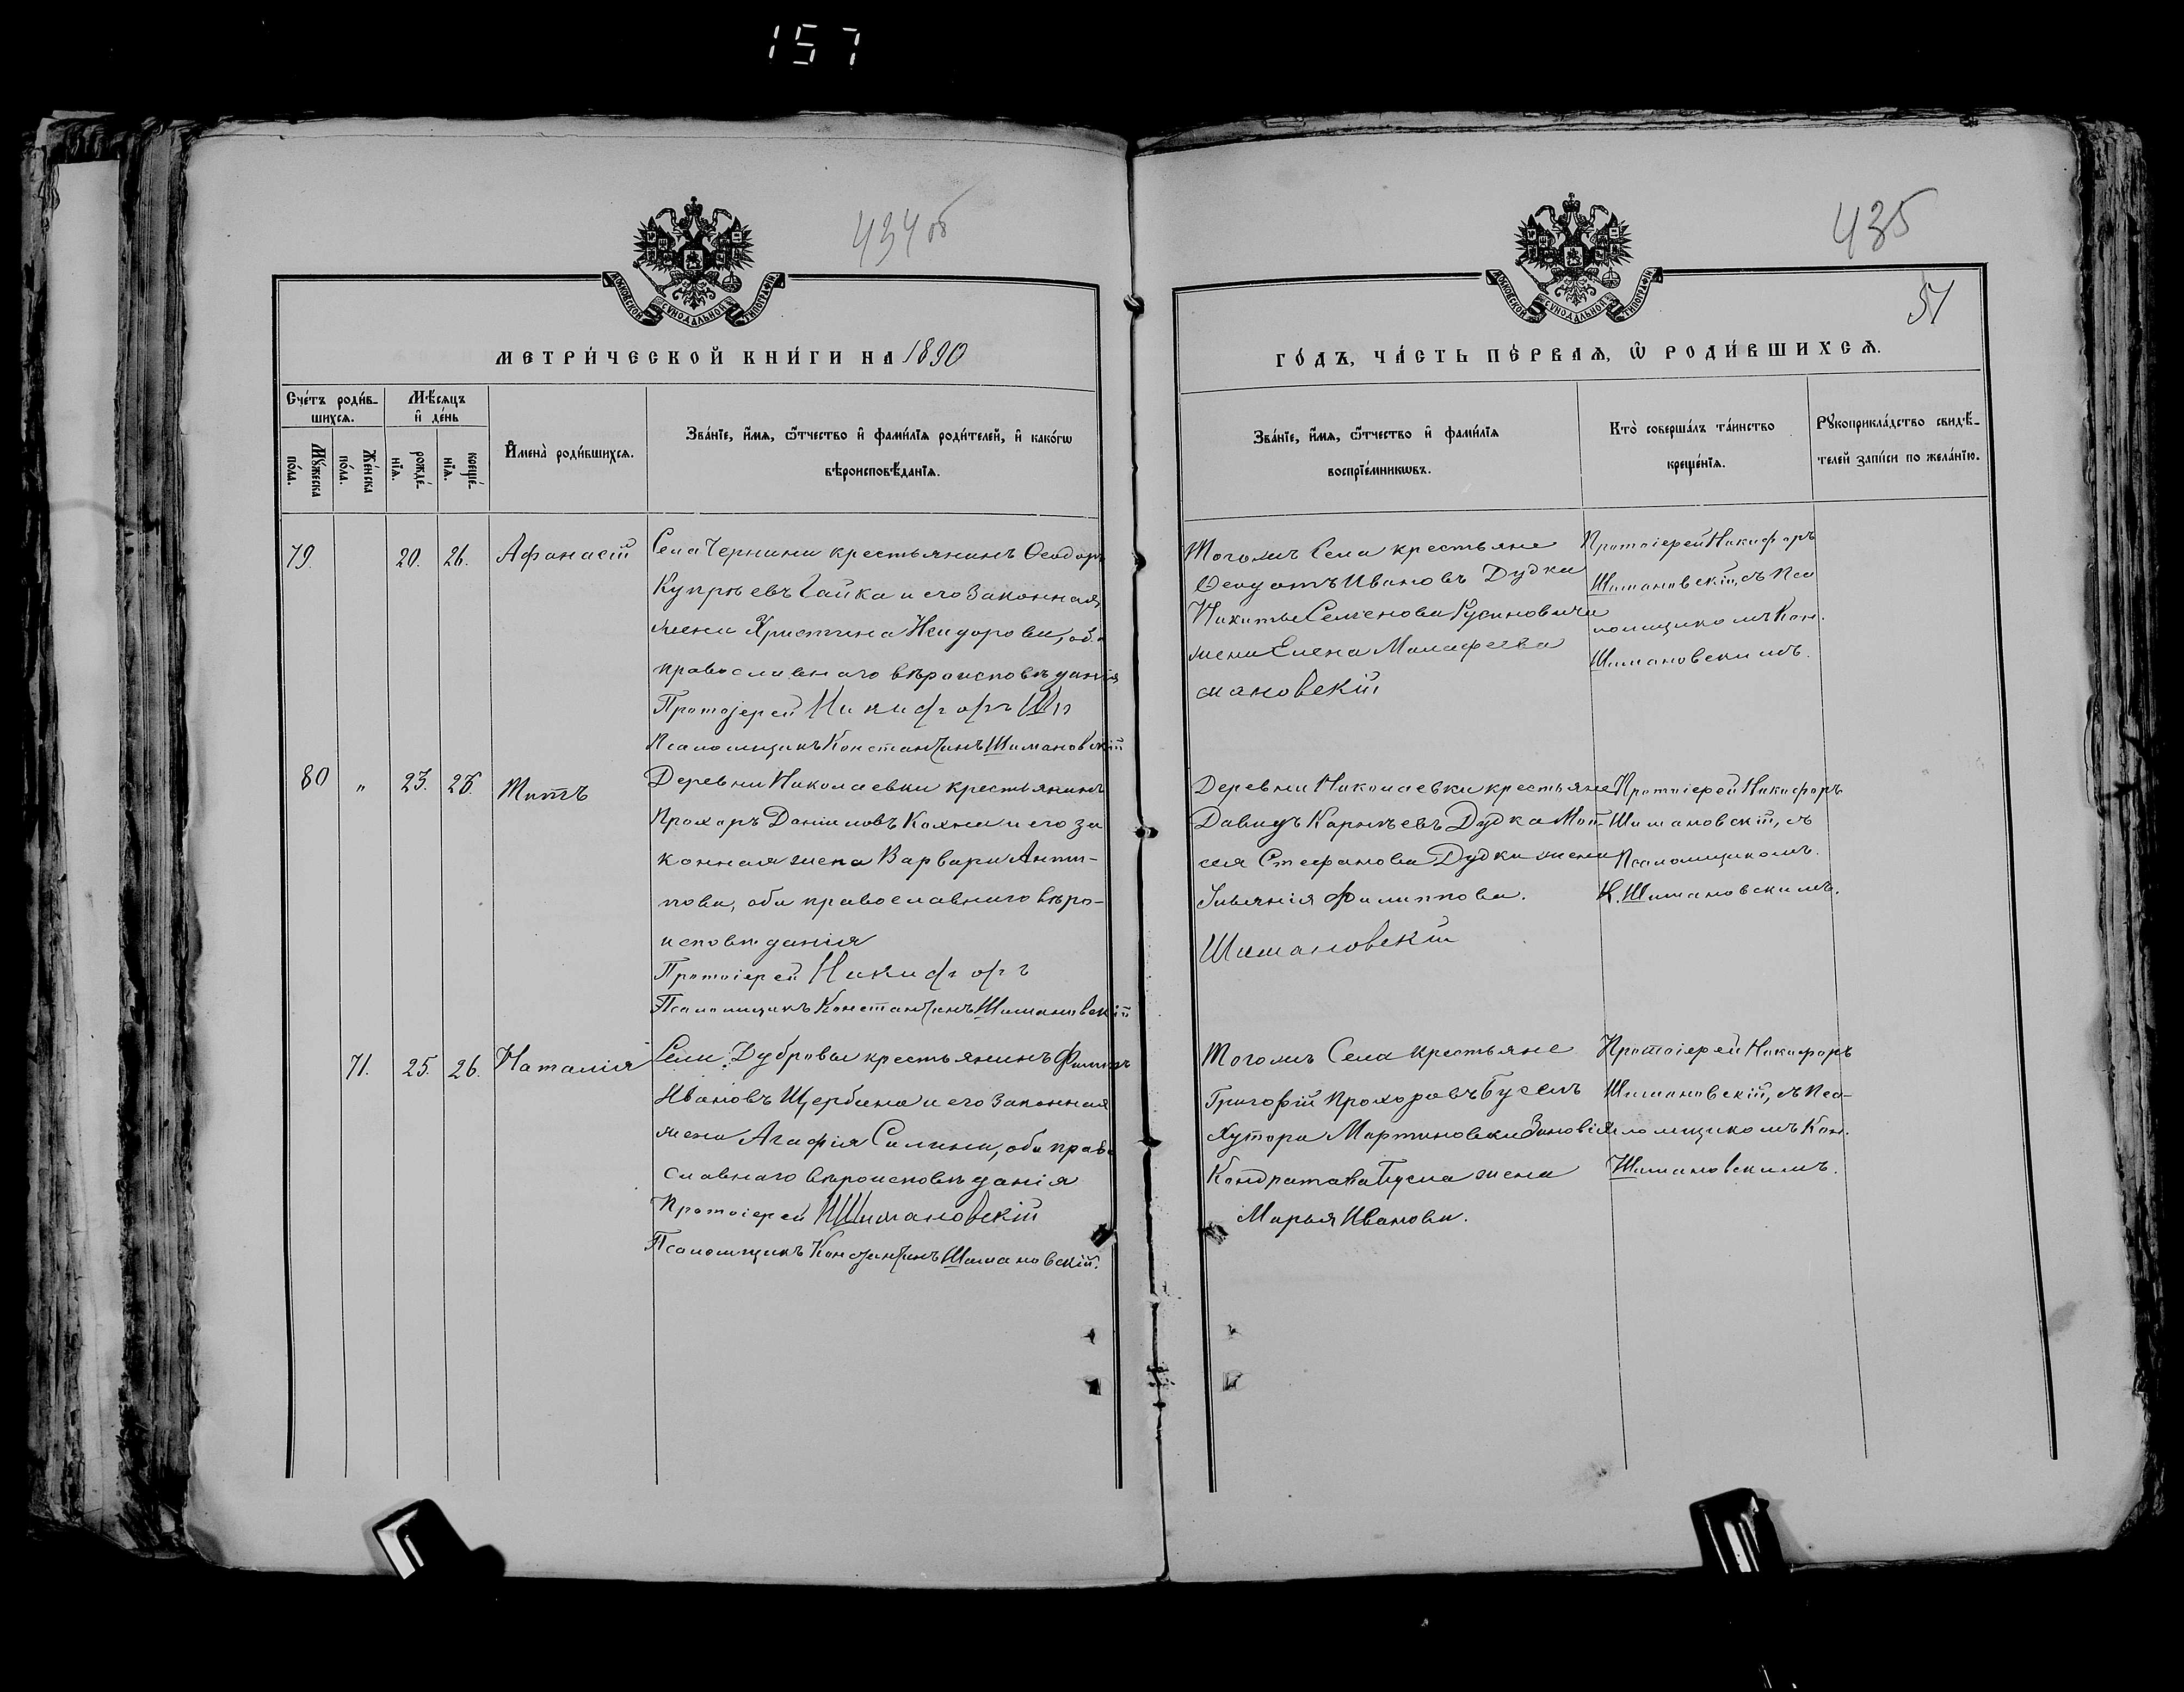 157
434 об
435
51
МОСКОВСКОЙ СѴНОДАЛЬНОЙ ТИПОГРАФІИ
МОСКОВСКОЙ СѴНОДАЛЬНОЙ ТИПОГРАФІИ
МЕТРИ́ЧЕСКОЙ КНИ́ГИ НА 1890
ГО́ДЪ, ЧА́СТЬ ПЕ́РВАѦ, Ѡ РОДИ́ВШИХСѦ.
Сче́тъ роди́в-
шихсѧ.
Мꙋ́жеска
по́ла.
Же́нска
по́ла.
Мѣ́сѧцъ
и҆ де́нь
рожде́-
нїѧ.
креще́-
нїѧ.
И҆мена̀ роди́вшихсѧ.
Зва́нїе, и҆́мѧ, ѻ҆́тчество и҆ фами́лїѧ роди́телей, и҆ како́гѡ
вѣроисповѣ́данїѧ.
Зва́нїе, и҆́мѧ, ѻ҆́тчество и҆ фами́лїѧ
воспрїе́мникѡвъ.
Кто̀ соверша́лъ та́инство
креще́нїѧ.
Рꙋкоприкла́дство свидѣ́-
телей за́писи по жела́нїю.
79. 20. 26. Афанасій
Села Чернини крестьянинъ Ѳеодоръ
Купрѣевъ Гайка и его законная
жена Христина Исидорова, оба
православнаго вѣроисповѣданія
Протоіерей Никифоръ Ши
Псаломщикъ Константинъ Шимановскій
Тогожъ Села крестьяне
Ѳеодотъ Ивановъ Дудка
Никиты Семенова Русиновича
жена Елена Малафеева
мановскій
Протоіерей Никифоръ
Шимановскій, съ Пса
ломщикомъ Кон.
Шимановскимъ.
80 " 23. 26. Титъ
Деревни Николаевки крестьянинъ
Прохоръ Даніиловъ Кохна и его за
конная жена Варвара Анти-
пова, оба православнаго вѣро-
исповѣданія
Протоіерей Никифоръ
Псаломщикъ Константинъ Шимановскій
Деревни Николаевки крестьяне
Давидъ Карнѣевъ Дудка Мои-
сея Стефанова Дудки жена
Іуліанія Филиппова.
Шимановскій
Протоіерей Никифоръ
Шимановскій, съ
Псаломщикомъ
К. Шимановскимъ.
71. 25. 26. Наталія
Села Дубровы крестьянинъ Филиппъ
Ивановъ Щербина и его законная
жена Агафія Силина, оба право
славнаго вѣроисповѣданія
Протоіерей Н Шимановскій
Псаломщикъ Константинъ Шимановскій.
Тогожъ Села крестьяне
Григорій Прохоровъ Бусел
Хутора Мартиновки Зиновія
Кондратова Бусла жена
Марья Иванова.
Протоіерей Никифоръ
Шимановскій, съ Пса-
ломщикомъ Кон.
Шимановскимъ.